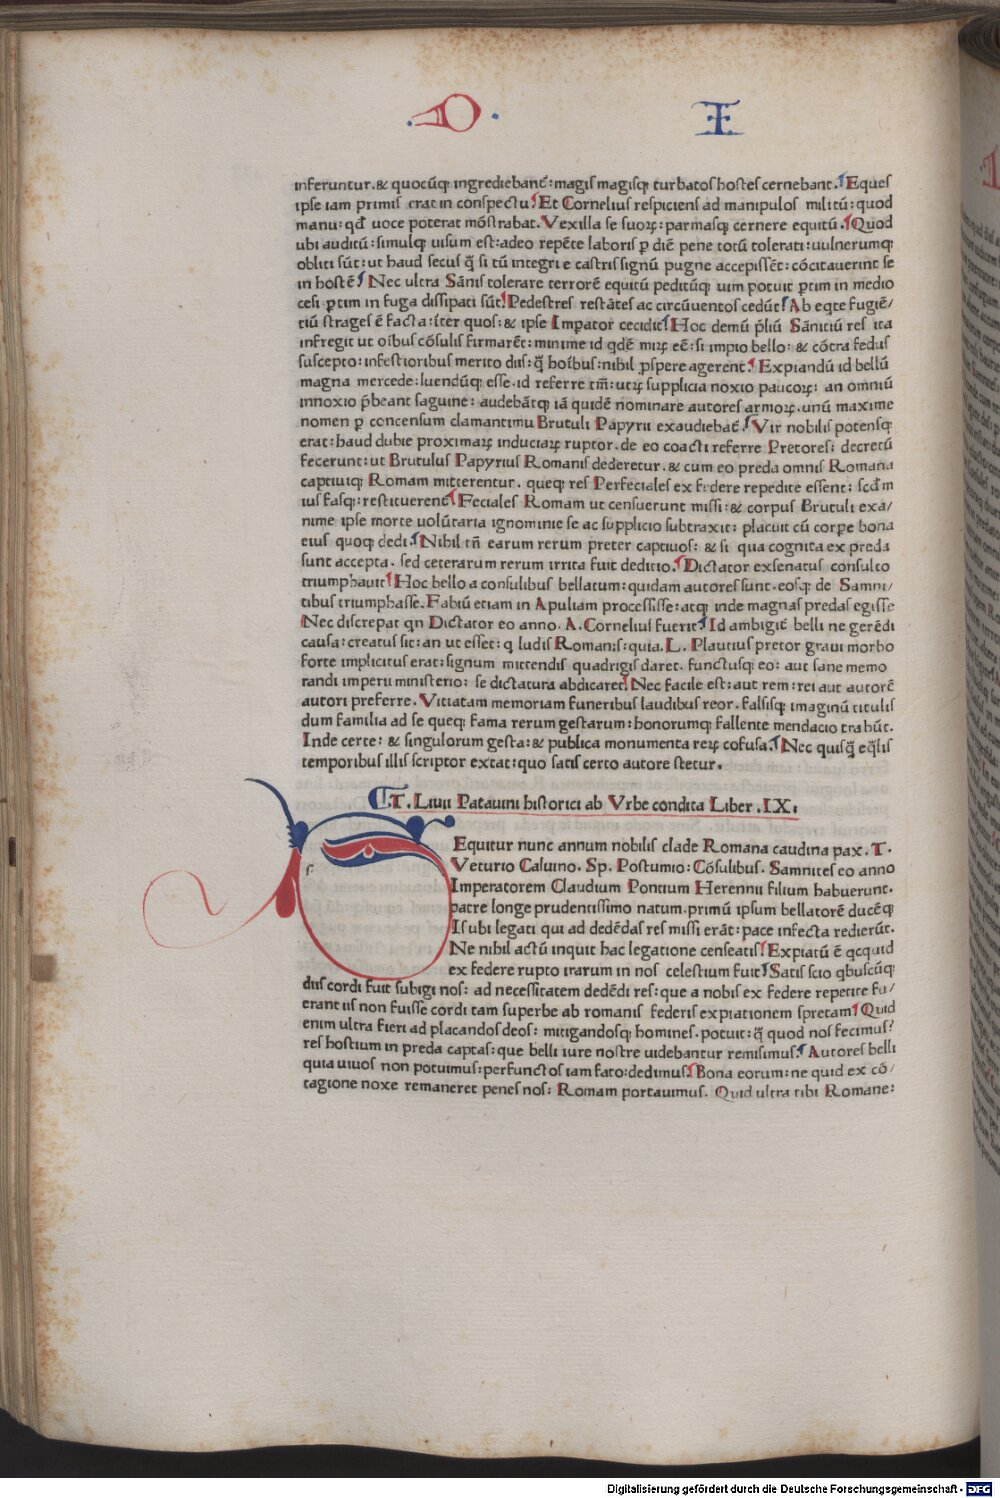 D. E
inferuntur. & quocūq; ingrediebant᷑: magis magisq; turbatos hostes cernebant. Eques
ipse iam primis erat in conspectu Et Cornelius respiciens ad manipulos militū: quod
manu: qd̄ uoce poterat mōstrabat. Vexilla se suoꝝ: parmasq; cernere equitū. Quod
ubi auditū: simulq; uisum est: adeo repēte laboris ꝑ diē pene totū tolerati: uulnerumq;
obliti sūt: ut haud secus q̄ si tū integri e castris signū pugne accepissēt: cōcitauerint se
in hostē Nec ultra Sānis tolerare terrorē equitū peditūq; uim potuit ꝑtim in medio
cesi ꝑtim in fuga dissipati sūt. Pedestres restātes ac circūuentos cedūt Ab eqte fugiē/
tiū strages ē facta: īter quos: & ipse Imꝑator cecidit Hoc demū p̄liū Sānitiū res ita
infregit ut oībus cōsulis firmarēt: minime id qdē miꝝ eē: si impio bello: & cōtra fedus
suscepto: infestioribus merito diis: q̄ hoībus: nihil ꝓspere agerent. Expiandū id bellū
magna mercede: luendūq; esse. id referre tm̄: utꝝ supplicia noxio paucoꝝ: an omniū
innoxio p̄beant saguine: audebātq; iā quidē nominare autores armoꝝ. unū maxime
nomen ꝑ concensum clamantimu Brutuli Papyrii exaudiebat᷑ Vir nobilis potensq;
erat: haud dubie proximaꝝ induciaꝝ ruptor. de eo coacti referre Pretores: decretū
fecerunt: ut Brutulus Papyrius Romanis dederetur. & cum eo preda omnis Romana
captiuiq; Romam mitterentur. queq; res Perfeciales ex federe repedite essent: scd̄m
ius fasq: restituerent᷑ Feciales Romam ut censuerunt missi: & corpus Brutuli exa/
nime ipse morte uolūtaria ignominie se ac supplicio subtraxit: placuit cū corꝑe bona
eius quoq; dedi. Nihil tn̄ earum rerum preter captiuos: & si qua cognita ex preda
sunt accepta. sed ceterarum rerum irrita fuit deditio. Dictator exsenatus consulto
triumphauit Hoc bello a consulibus bellatum: quidam autores sunt. eosq; de Samni/
tibus triumphasse. Fabiū etiam in Apuliam processisse: atq; inde magnas predas egisse
Nec discrepat qn Dictator eo anno. A. Cornelius fuerit Id ambigit᷑ belli ne gerēdi
causa: creatus sit: an ut esset: q ludis Romanis: quia. L. Plautius pretor graui morbo
forte implicitus erat: signum mittendis quadrigis daret. functusq; eo: aut sane memo
randi imperii ministerio: se dictatura abdicaret. Nec facile est: aut rem: rei aut autorē
autori preferre. Vitiatam memoriam funeribus laudibus reor. falsisq; imaginū titulis
dum familia ad se queq; fama rerum gestarum: honorumq; fallente mendacio trahūt.
Inde certe: & singulorum gesta: & publica monumenta reꝝ cōfusa. Nec quisq̄ eq̄lis
temporibus illis scriptor extat: quo satis certo autore stetur.
T. Liuii Patauini historici ab Vrbe condita Liber .IX.
S Equitur nunc annum nobilis clade Romana caudina pax. T.
Veturio Caluino. Sp. Postumio: Cōsulibus. Samnites eo anno
Imperatorem Claudium Pontium Herennii filium habuerunt.
patre longe prudentissimo natum. primū ipsum bellatorē ducēq;
Is ubi legati qui ad dedēdas res missi erāt: pace infecta redierūt.
Ne nihil actū inquit hac legatione censeatis Expiatū ē qcquid
ex federe rupto irarum in nos celestium fuit Satis scio qbuscūq;
diis cordi fuit subigi nos: ad necessitatem dedēdi res: que a nobis ex federe repetite fu/
erant iis non fuisse cordi tam superbe ab romanis federis expiationem spretam Quid
enim ultra fieri ad placandos deos: mitigandosq; homines. potuit: q̄ quod nos fecimus?
res hostium in preda captas: que belli iure nostre uidebantur remisimus. Autores belli
quia uiuos non potuimus: perfunctos iam fato: dedimus Bona eorum: ne quid ex cō/
tagione noxe remaneret penes nos: Romam portauimus. Quid ultra tibi Romane:
Digitalisierung gefördert durch die Deutsche Forschungsgemeinschaft - DFG